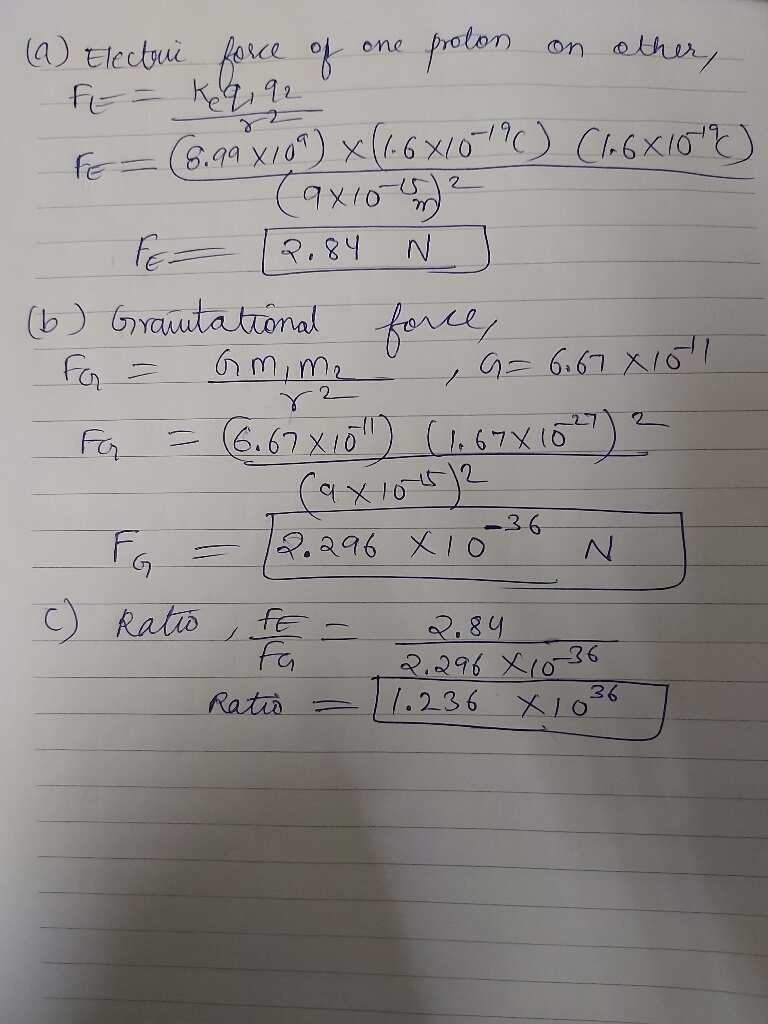 (a) Electric force of one proton on other,
FE = Ke q1 q2 / r2
FE = (8.99 x 10^9) x (1.6 x 10^-19 C) (1.6 x 10^-19 C) / (9 x 10^-15 m)^2
FE = 2.84 N
(b) Gravitational force,
FG = G m1 m2 / r2 , G = 6.67 x 10^-11
FG = (6.67 x 10^-11) (1.67 x 10^-27)^2 / (9 x 10^-15)^2
FG = 2.296 x 10^-36 N
c) Ratio, FE / FG = 2.84 / 2.296 x 10^-36
Ratio = 1.236 x 10^36